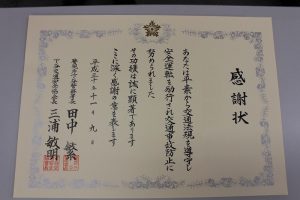 感謝状
あなたは平素から交通法規を遵守し
安全運転を励行され交通事故防止に
努められました
その功績は誠に顕著であります
ここに深く感謝の意を表します
平成三十年十一月九日
田中 繁
三浦 敏明